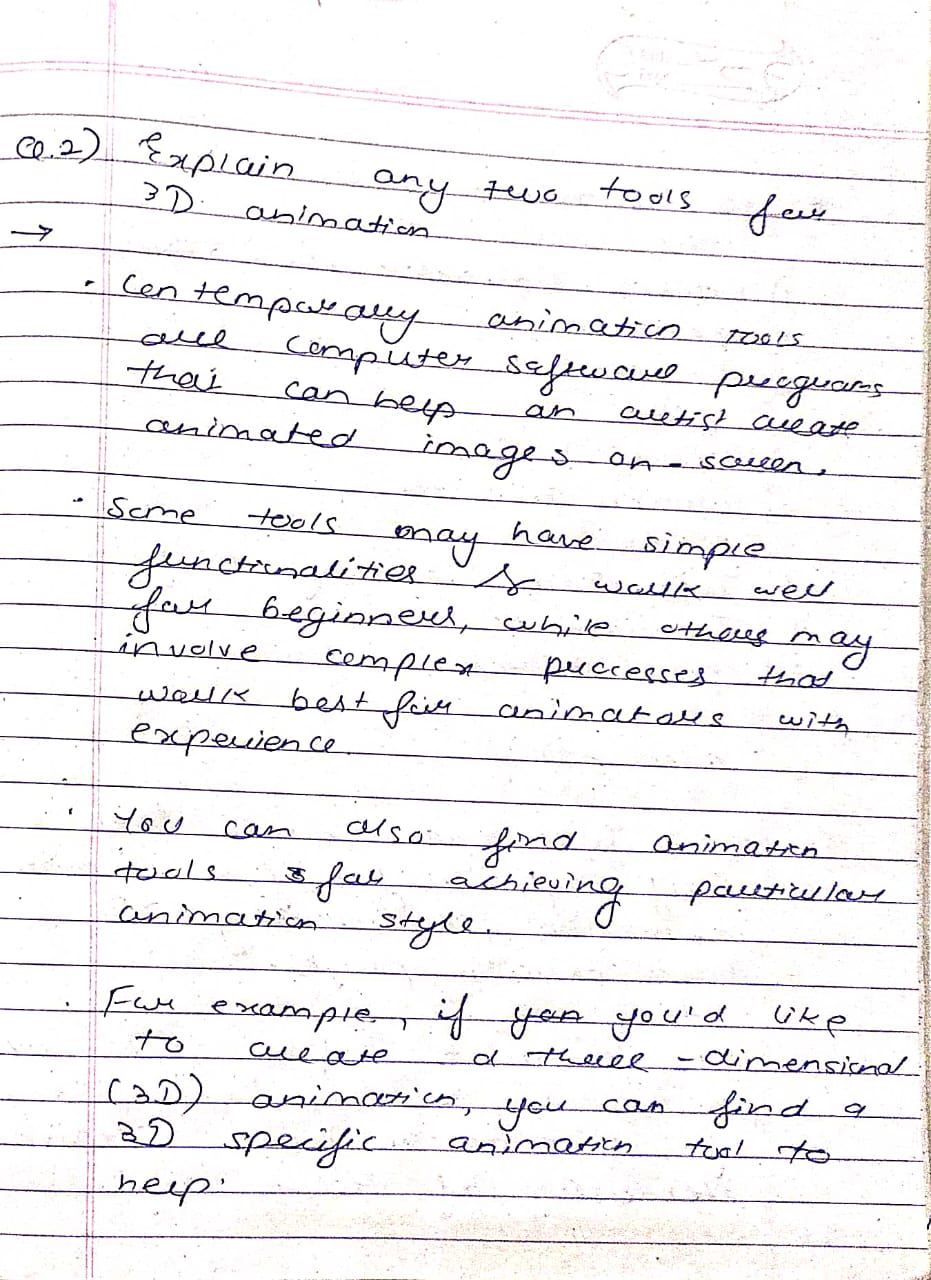 Q.2) Explain any two tools for
3D. animation
→
• Contemporary animation tools
are computer software programs
that can help an artist create
animated images on-screen.
• Some tools may have simple
functionalities & work well
for beginners, while others may
involve complex processes that
work best for animators with
experience.
• You can also find animation
tools for achieving particular
animation style.
• For example, if you'd like
to create a three-dimensional
(3D) animation, you can find a
3D specific animation tool to
help.